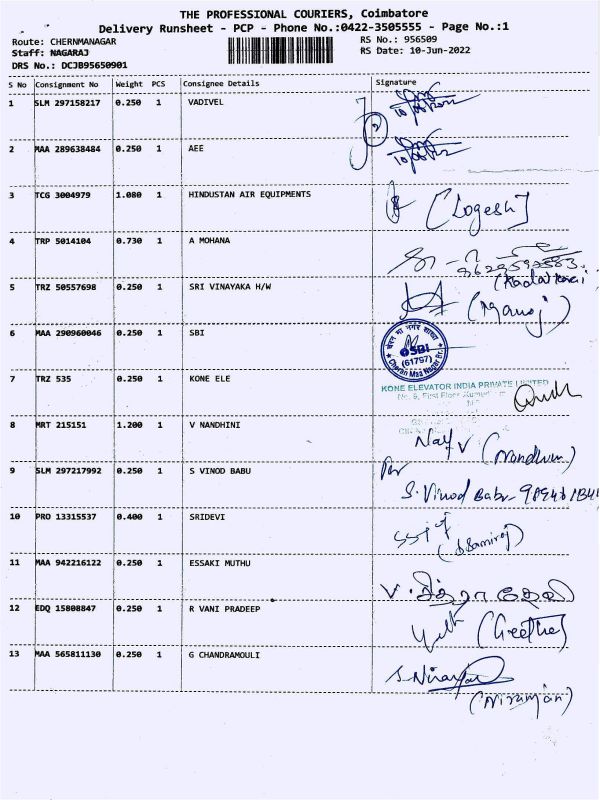 THE PROFESSIONAL COURIERS, Coimbatore
Delivery Runsheet - PCP - Phone No.:0422-3505555 - Page No.:1
Route: CHERNMANAGAR RS No.: 956509
Staff: NAGARAJ RS Date: 10-Jun-2022
DRS No.: DCJB95650901
S No Consignment No Weight PCS Consignee Details Signature
1 SLM 297158217 0.250 1 VADIVEL
2 MAA 289638484 0.250 1 AEE
3 TCG 3004979 1.080 1 HINDUSTAN AIR EQUIPMENTS [Logesh]
4 TRP 5014104 0.730 1 A MOHANA
5 TRZ 50557698 0.250 1 SRI VINAYAKA H/W (Manoj)
6 MAA 290960046 0.250 1 SBI
चेरन मा नगर शाखा
SBI
(61797)
Cheran Maa Nagar Br.
7 TRZ 535 0.250 1 KONE ELE
KONE ELEVATOR INDIA PRIVATE LIMITED
No. 6, First Floor,
8 MRT 215151 1.200 1 V NANDHINI
9 SLM 297217992 0.250 1 S VINOD BABU
S. Vinod Babu-
10 PRO 13315537 0.400 1 SRIDEVI
11 MAA 942216122 0.250 1 ESSAKI MUTHU
12 EDQ 15808847 0.250 1 R VANI PRADEEP (Geetha)
13 MAA 565811130 0.250 1 G CHANDRAMOULI
(Niranjan)